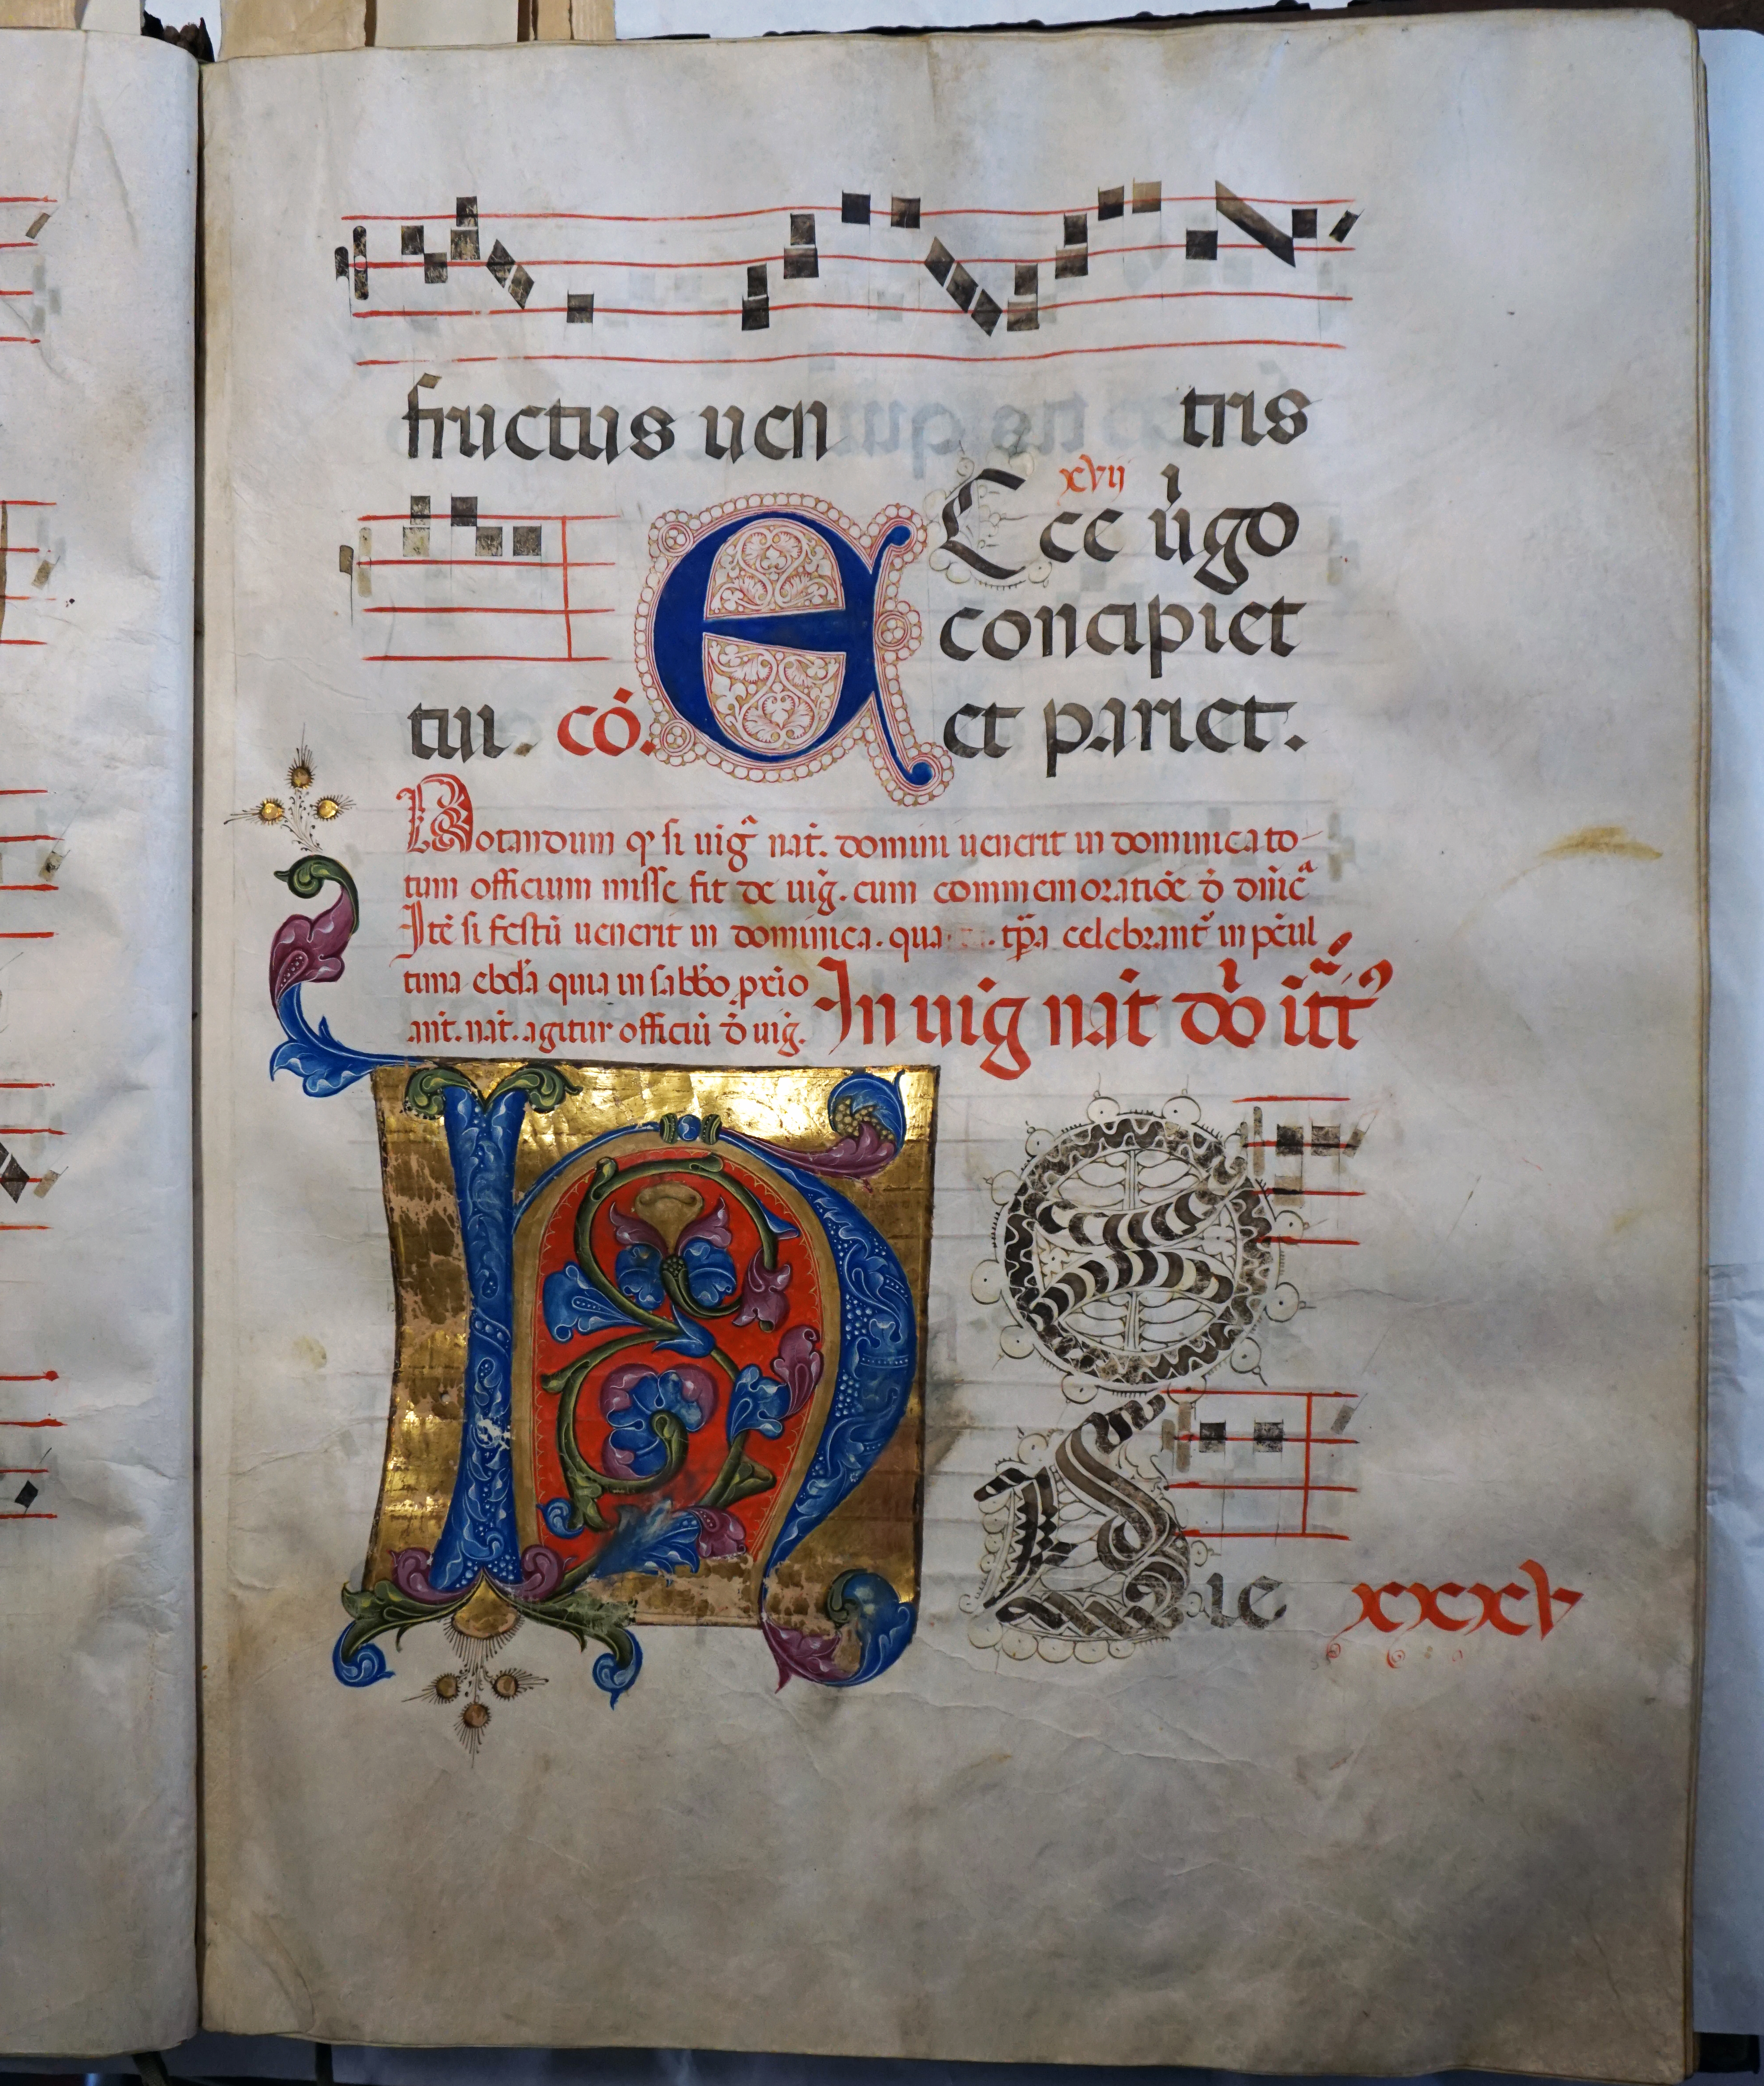 fructus uen tris
xvij
Ecce ůgo
concipiet
tui. có. et pariet.
Notandum ꝙ si uig̃ nat̃. domini uenerit in dominica to-
tum officium misse fit de uig̃. cum commemoratiõe đ dñic̃a
Itẽ si festũ uenerit in dominica. qua tp̃a celebrant̃ in pẽul
tima ebd̃a quia in sabb̃o prĩo
ant̃. nat̃. agitur officiũ đ uig̃.
In uig̃ nat̃ dõ
H O
Die
xxxv